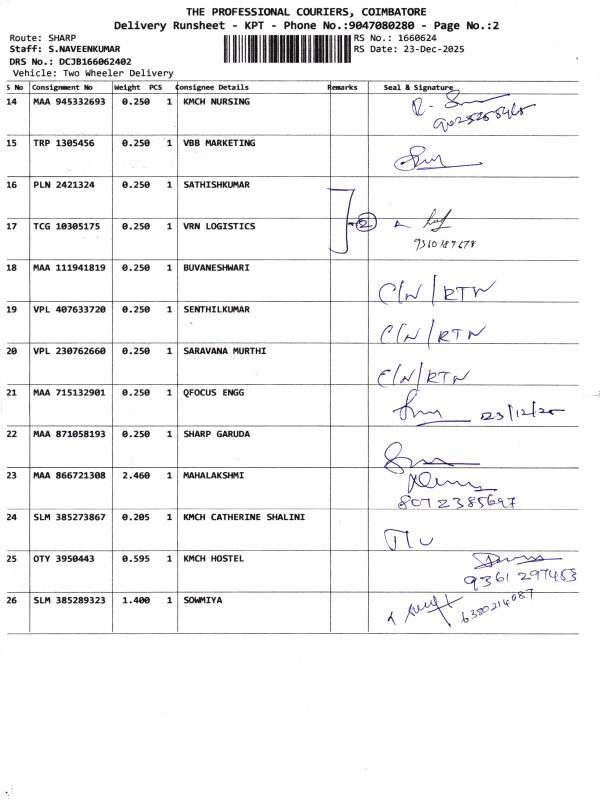 THE PROFESSIONAL COURIERS, COIMBATORE
Delivery Runsheet - KPT - Phone No.:9047080280 - Page No.:2
Route: SHARP RS No.: 1660624
Staff: S.NAVEENKUMAR RS Date: 23-Dec-2025
DRS No.: DCJB166062402
Vehicle: Two Wheeler Delivery
S No Consignment No Weight PCS Consignee Details Remarks Seal & Signature
14 MAA 945332693 0.250 1 KMCH NURSING
15 TRP 1305456 0.250 1 VBB MARKETING
16 PLN 2421324 0.250 1 SATHISHKUMAR
17 TCG 10305175 0.250 1 VRN LOGISTICS 2
18 MAA 111941819 0.250 1 BUVANESHWARI C/N/RTN
19 VPL 407633720 0.250 1 SENTHILKUMAR C/N/RTN
20 VPL 230762660 0.250 1 SARAVANA MURTHI C/N/RTN
21 MAA 715132901 0.250 1 QFOCUS ENGG 23/12/25
22 MAA 871058193 0.250 1 SHARP GARUDA
23 MAA 866721308 2.460 1 MAHALAKSHMI
8072385697
24 SLM 385273867 0.205 1 KMCH CATHERINE SHALINI
25 OTY 3950443 0.595 1 KMCH HOSTEL
9361297453
26 SLM 385289323 1.400 1 SOWMIYA 6380214087